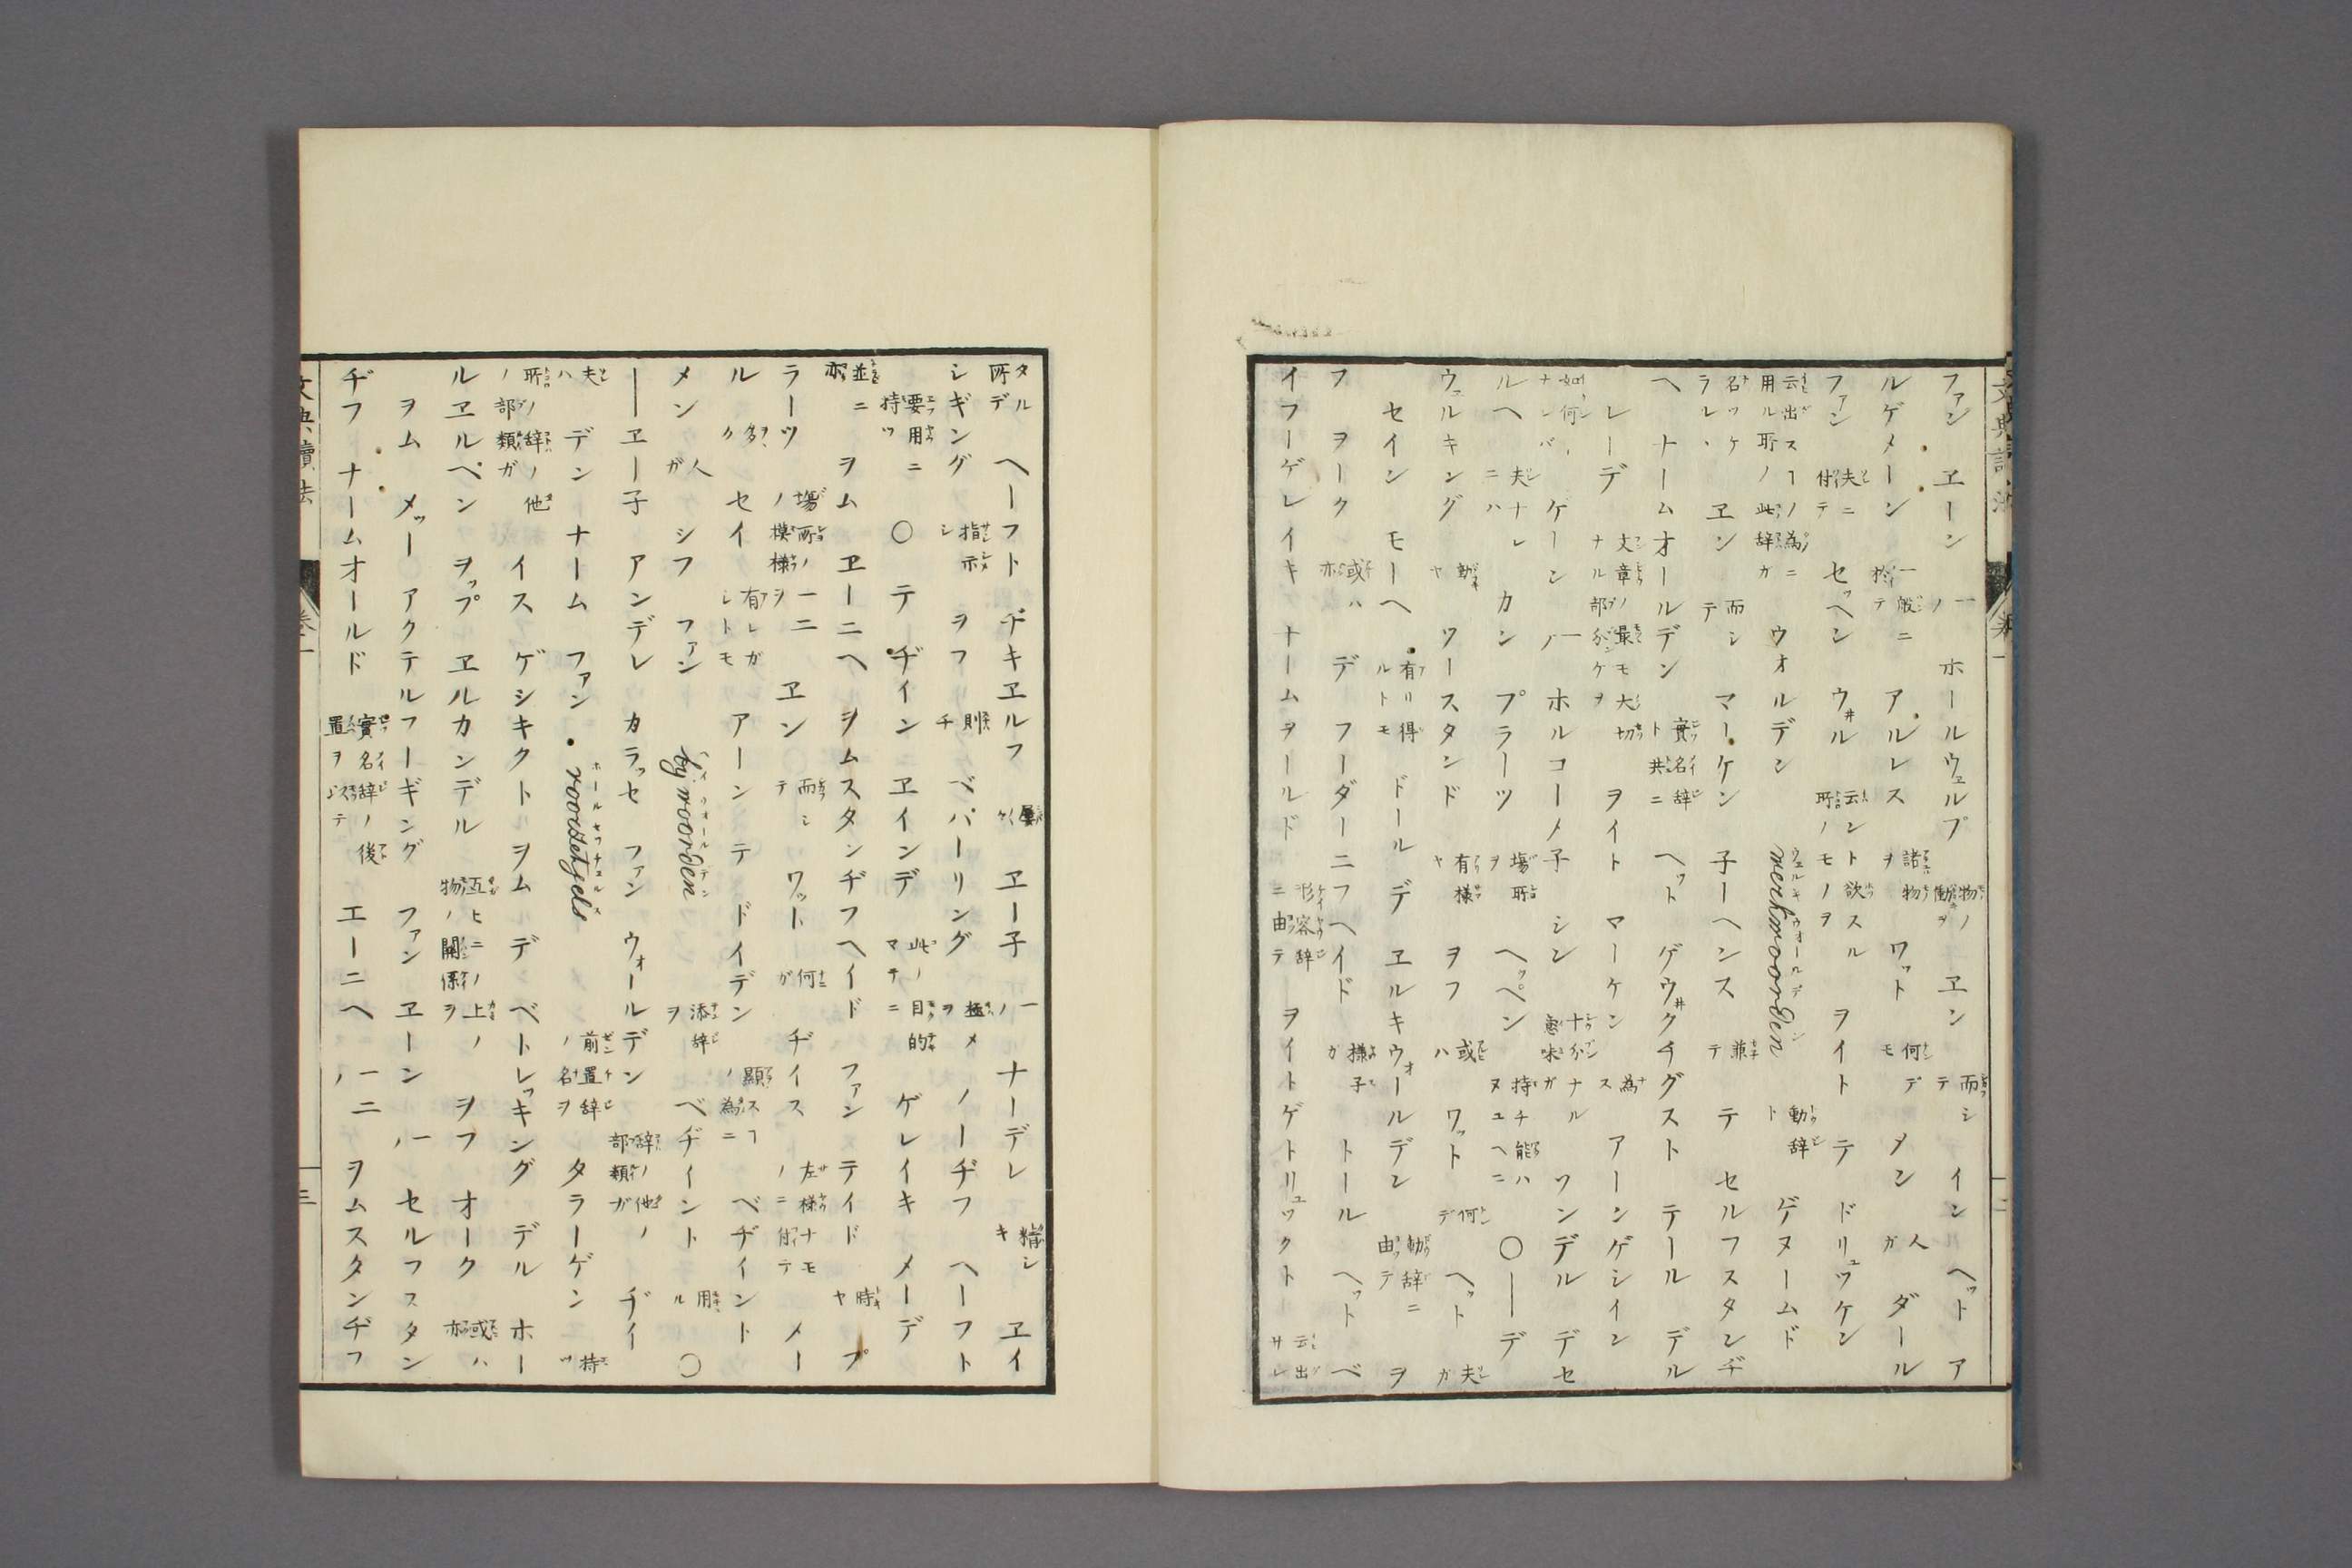 ファン ヱーン 一ノ ホールウェルプ 物ノ働ヲ ヱン 而シテ インヘット ア
ルゲメーン 一般ニ於テ アルレス 諸物ヲ ワット 何デモ メン 人ガ ダール
ファン 夫ニ付テ セッヘン ウ井ル 云ント欲スル所ノモノヲ ヲイト テ ドリュッケン
云出スヿノ為ニ用ル所ノ此辞ガ ウォルデン werkwoorden 動辞ト ゲヌームド
名ツケラレ、 ヱン 而シテ マーケン 子ーヘンス 兼テ テ セルフスタンヂ
ヘ ナームオールデン 實名辞ト共ニ ヘット ゲウ井クチグスト テール デル
レーデ 文章ノ最モ大切ナル部分ケヲ ヲイト マーケン 為ス アーンゲシイン
如何ンナレバ、 ケーン 一ノ ホルコーメ子 シン 十分ナル意味ガ ソンデル デセ
ルヘ 夫ナレニハ カン プラーツ 場所ヲ ヘッペン 持チ能ハヌユヘニ 〇―デ
ウェルキング 動ヤ ワースタンド 有様ヤ ヲフ 或ハ ワット 何デ ヘット 夫ガ
セイン モーヘ 有リ得ルトモ ドール デ ヱルキウォールデン 動辞ニ由テ ヲ
フ ヲーク 或ハ亦 デ フーダーニフヘイド 様子ガ トール ヘット ベ
イフーゲレイキ ナームヲールド 形容辞ニ由テ ヲイトゲトリュックト 云出サレ
タル所デ ヘーフト ヂキヱルフ 屢〱 ヱー子 一ノ ナーデレ 精シキ ヱイ
シギング 指示シ ヲフ 則チ ベパーリング 極メヲ ノーヂフ ヘーフト
要用ニ持ツ 〇 テ ヂイン ヱインデ 此ノ目的マテニ ゲレイキ メーデ
並ニ亦 ヲム ヱーニヘ ヲムスタンヂフヘイド ファン テイド 時ヤ プ
ラーツ 場所ノ模様ノ一二ヲ ヱン 而シテ ワット 何ガ ヂイス 左様ナモノニ付テ メー
ル 多ク セイ 有レガシトモ アーン テ ドイデン 顕スヿノ為ニ ベヂイント
メン 人ガ シフ ファン bij woorden 添辞ヲ ベヂイント 用ル 〇
―ヱー子 アンデレ カラッセ ファン ウォールデン 辞ノ他ノ部類ガ ヂイ
夫ハ デン ナーム ファン voorzetsels 前置辞ノ名ヲ タラーゲン 持ツ
所ノ辞ノ他ノ部類ガ イス ゲシキクト ヲム デ ベトレッキング デル ホー
ルヱルペン ヲップ ヱルカンデル 物ノ互ヒニノ上ノ関係ヲ ヲフ オーク 或ハ亦
ヲム メッー アクテルフーギング ファン ヱーン 一ノ セルフスタン
ヂフ ナームオールド 實名辞ノ後置ヲ以テ エーニヘ 一二ノ ヲムスタンヂフ